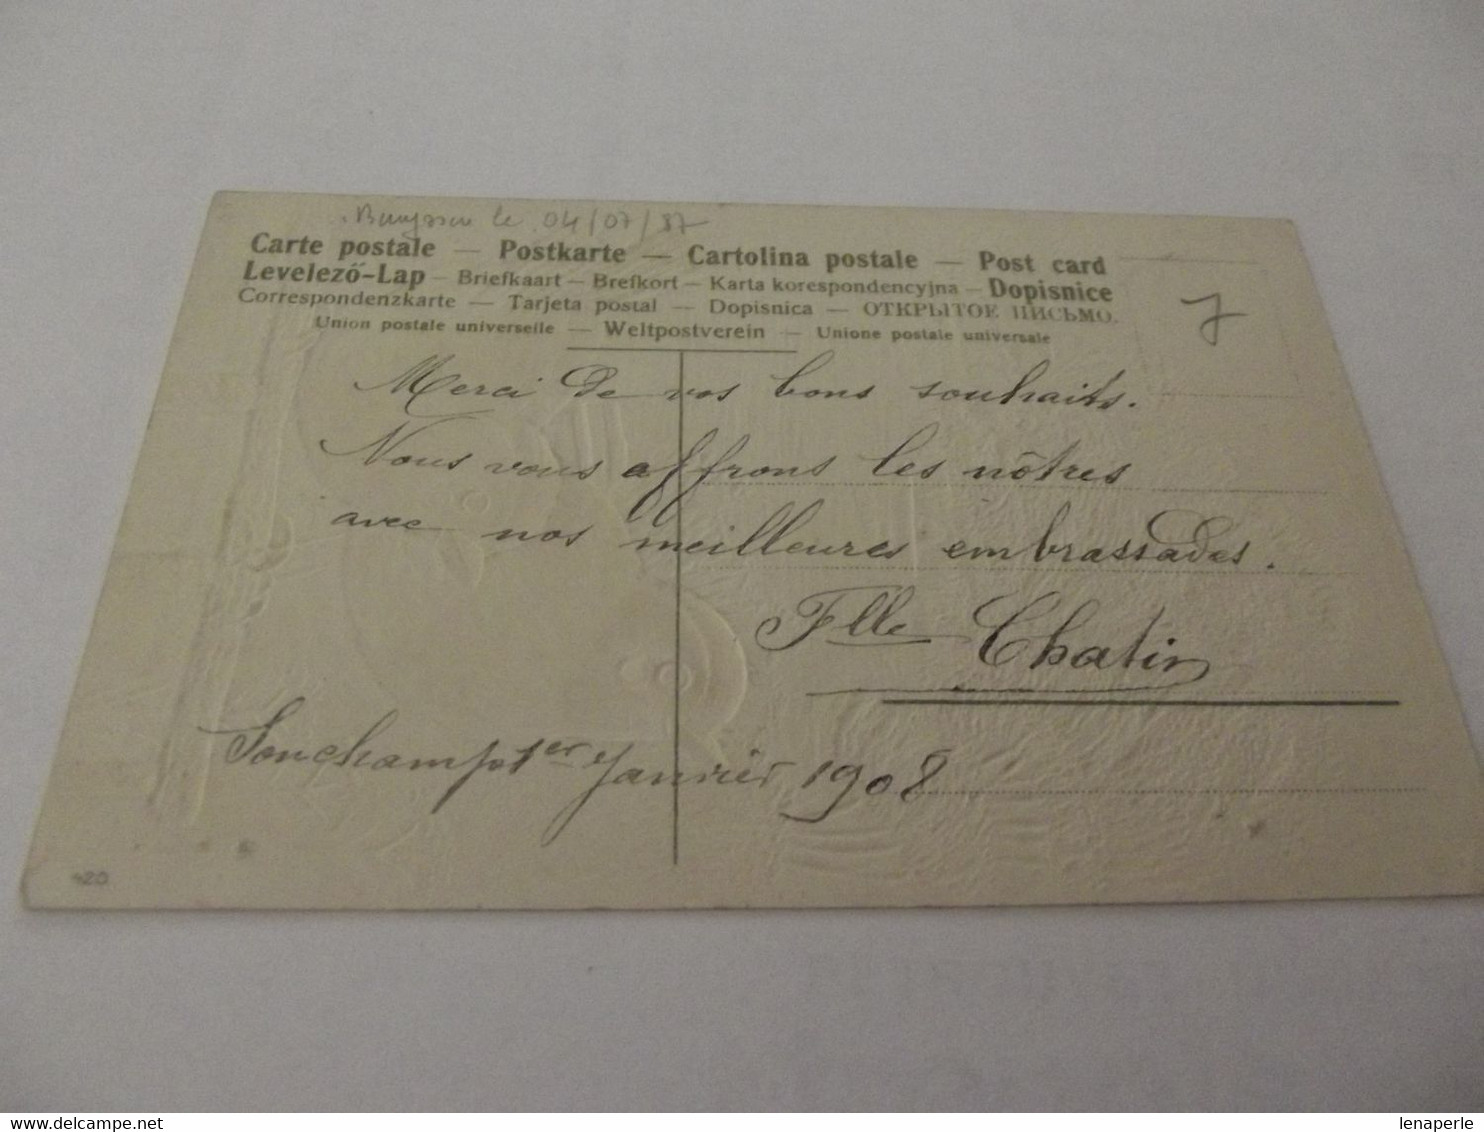 le 04/07/87
Carte postale — Postkarte — Cartolina postale — Post card
Levelező-Lap — Briefkaart — Brefkort — Karta korespondencyjna — Dopisnice
Correspondenzkarte — Tarjeta postal — Dopisnica — ОТКРЫТОЕ ПИСЬМО.
Union postale universelle — Weltpostverein — Unione postale universale
7
Merci de vos bons souhaits.
Nous vous offrons les nôtres
avec nos meilleures embrassades.
Flle Chatin
1er Janvier 1908
420
© lenaperle